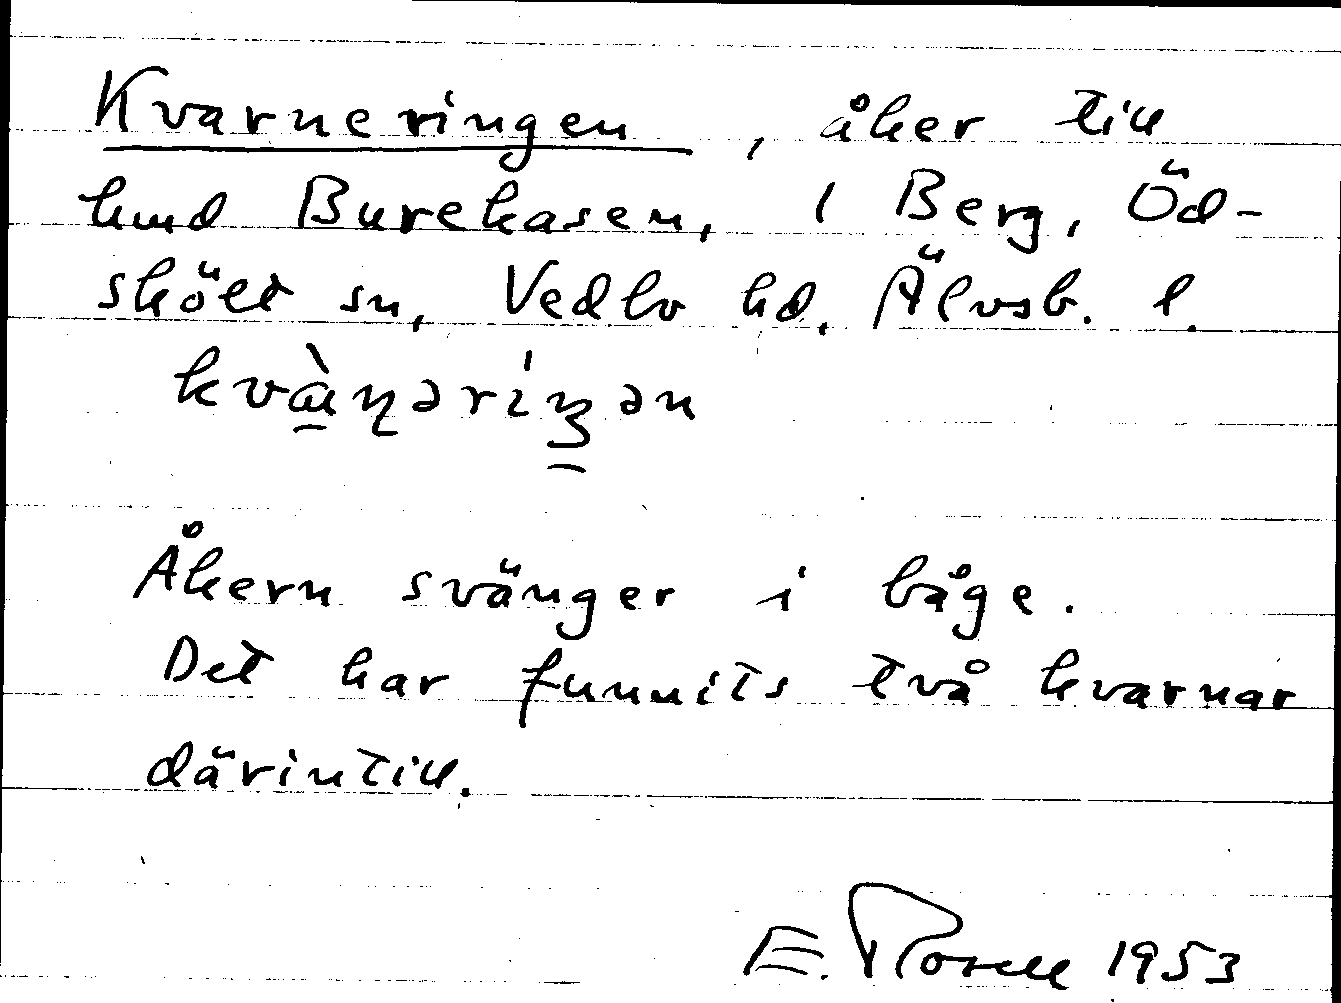 Kvarneringen, åker till
hmd Burekasen, 1 Berg, Öd-
skölt sn, Vedbo hd, Älvsb. l.
Åkern svänger i båge.
Det har funnits två kvarnar
därintill.
E. Rosell 1953